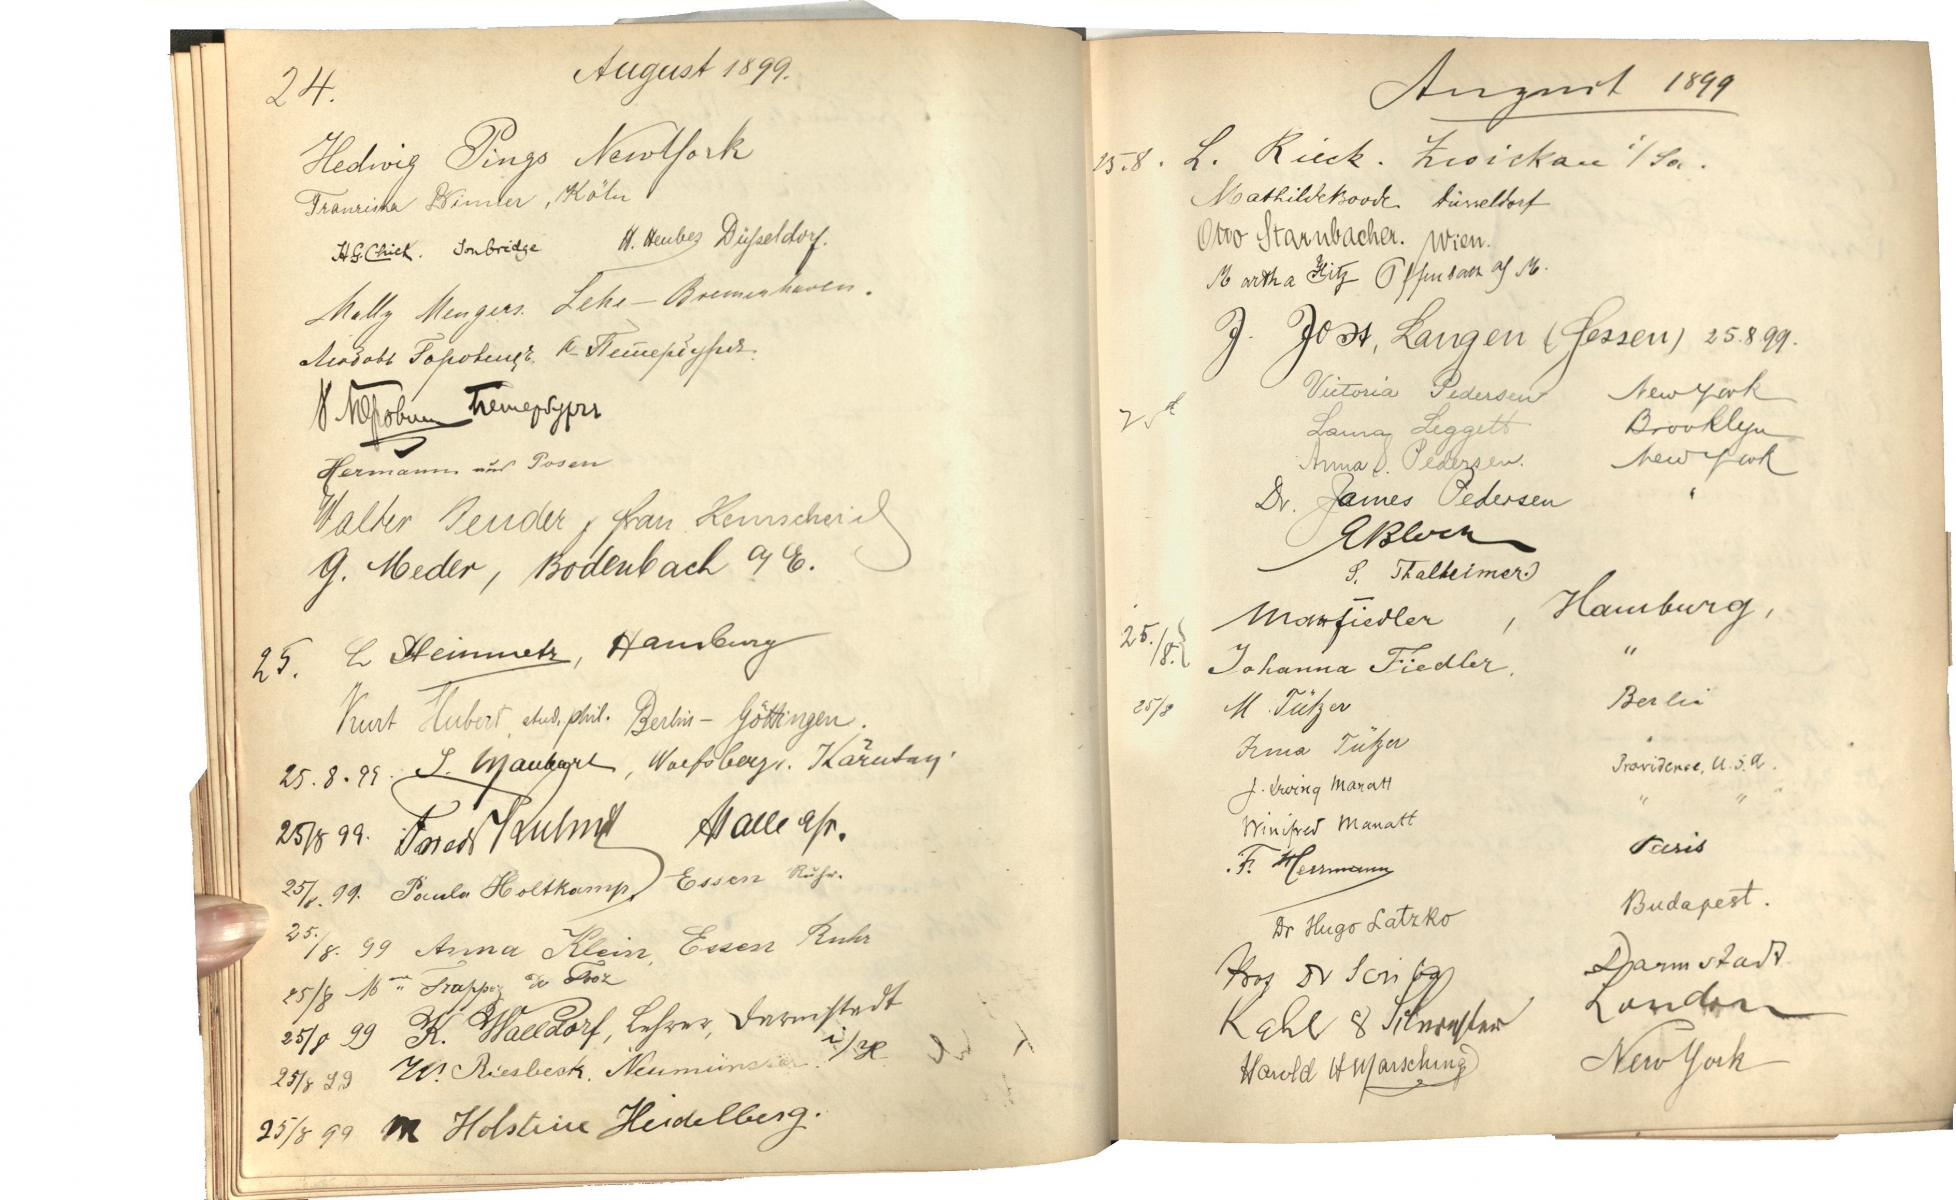 24.
August 1899.
Hedwig Pings New York
Franziska Winner, Köln
H.G. Chick. Tonbridge H. Heubes Düsseldorf.
Mally Mengers. Lehe - Bremerhaven.
Любовь Горовицъ. С-Петербургъ.
Петербургъ
Hermann aus Posen
Walter Bender, frau Remscheid
G. Meder, Bodenbach a/E.
25. L Steinmetz, Hamburg
Kurt Hubert, stud. phil. Berlin - Göttingen.
25.8.99. Wolfsberg. Kärnten.
25/8 99. Halle a/s.
25/8. 99. Paula Holtkamp, Essen Ruhr.
25./8. 99 Anna Klein, Essen Ruhr
25/8 Mme Trappez de
25/8 99 K. Walldorf, Lehrer, Darmstadt
25/8 99 W. Riesbeck. Neumünster i/H
25/8 99 M Holstein Heidelberg.
August 1899
25.8. L. Rieck. Zwickau i/Sa.
Mathilde Boode Düsseldorf
Otto Starnbacher. Wien.
Martha Hitz Offenbach a/M.
J. Jost, Langen (Hessen) 25.8 99.
Victoria Pedersen New York
Laura Leggett Brooklyn
Anna J. Pedersen. New York
Dr. James Pedersen "
E Bloch
S. Thalheimer
25./8. Max Fiedler, Hamburg,
Johanna Fiedler. "
25/8 M. Tützer Berlin
Irma Tützer "
J. Irving Manatt Providence, U.S.A.
Winifred Manatt " "
F. Herrmann Paris
Dr Hugo Latzko Budapest.
Dr Darmstadt
Kahl & Silvester London
Harold H Marsching New York